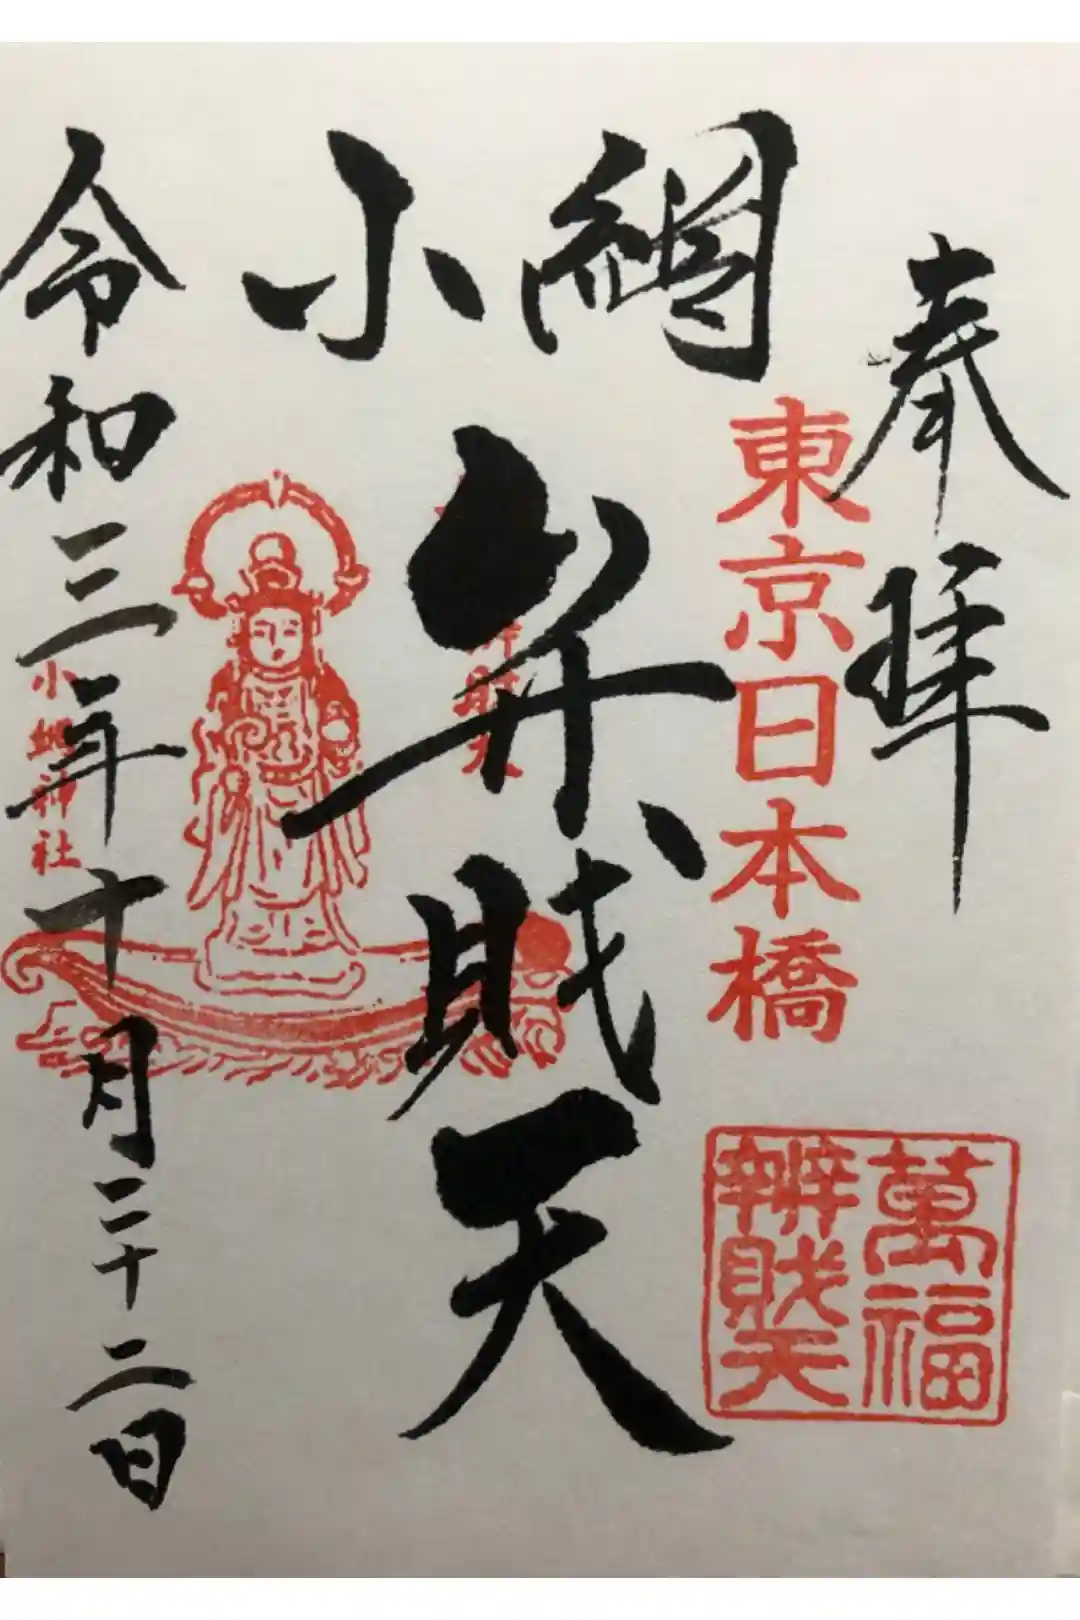 奉拝
東京日本橋
萬福
辨財天
小網
弁財天
令和三年十月二十二日
小網神社